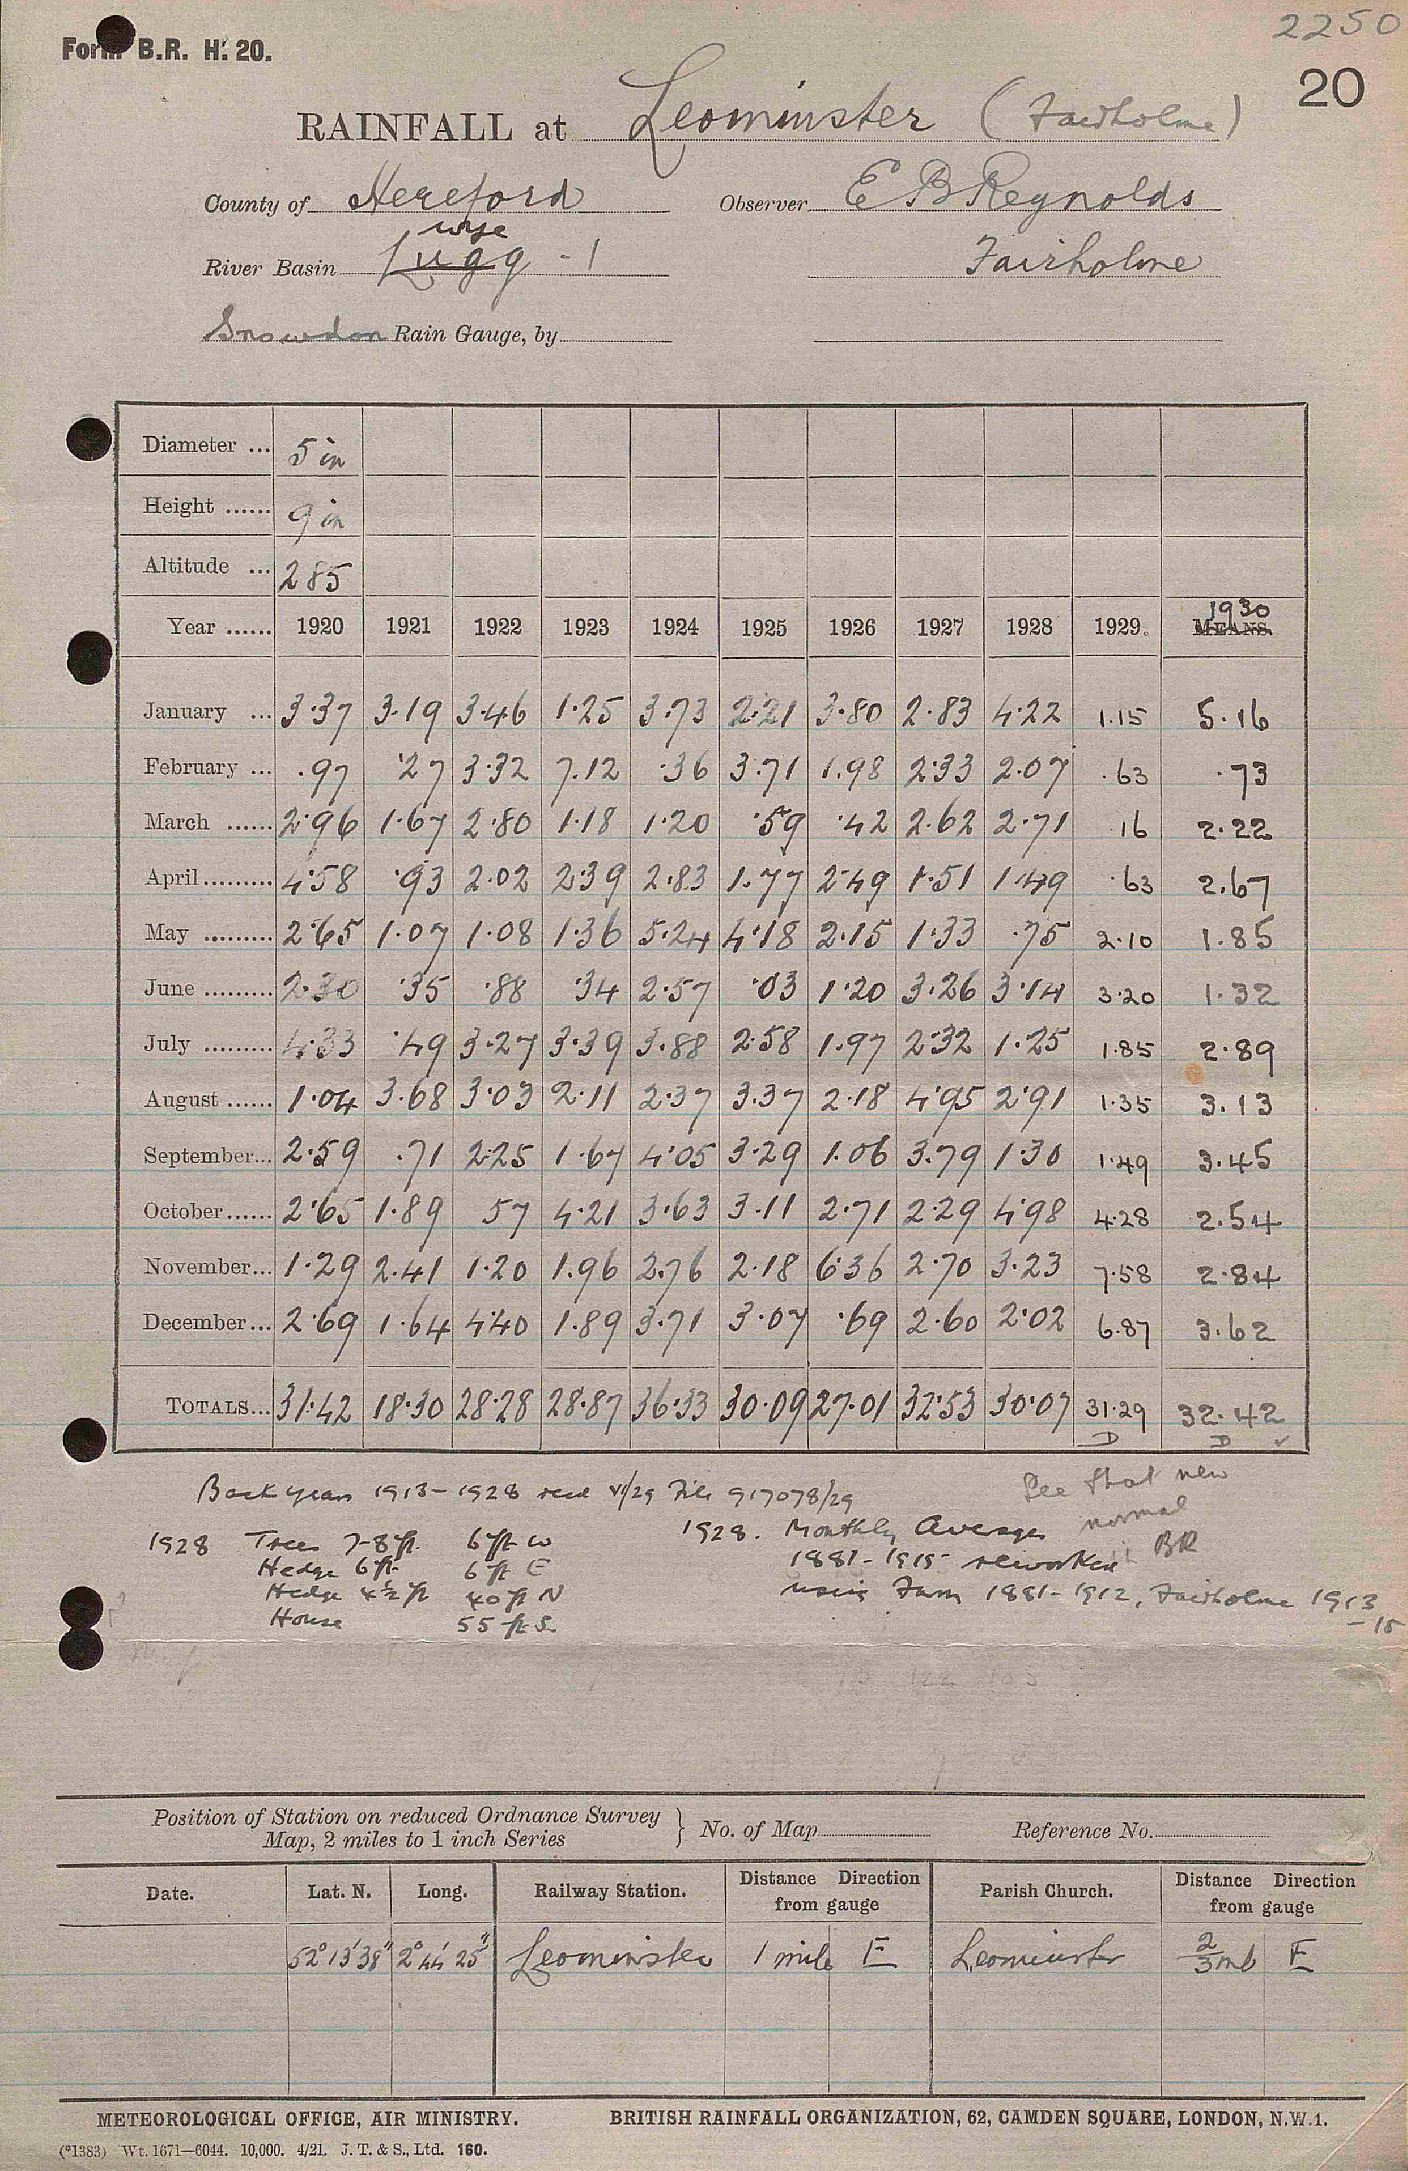 2250
Form B.R. H. 20.
20
RAINFALL at Leominster (Fairholme)
County of Hereford Observer E B Reynolds
Wye
River Basin Lugg - 1 Fairholme
Snowdon Rain Gauge, by
Diameter ... 5 in
Height ...... 9 in
Altitude ... 285
Year ...... 1920 1921 1922 1923 1924 1925 1926 1927 1928 1929. 1930 MEANS.
January ... 3.37 3.19 3.46 1.25 3.73 2.21 3.80 2.83 4.22 1.15 5.16
February ... .97 .27 3.32 7.12 .36 3.71 1.98 2.33 2.07 .63 .73
March ...... 2.96 1.67 2.80 1.18 1.20 .59 .42 2.62 2.71 16 2.22
April ......... 4.58 .93 2.02 2.39 2.83 1.77 2.49 1.51 1.49 .63 2.67
May ......... 2.65 1.07 1.08 1.36 5.24 4.18 2.15 1.33 .75 2.10 1.85
June ......... 2.30 .35 .88 .34 2.57 .03 1.20 3.26 3.14 3.20 1.32
July ......... 4.33 .49 3.27 3.39 3.88 2.58 1.97 2.32 1.25 1.85 2.89
August ...... 1.04 3.68 3.03 2.11 2.37 3.37 2.18 4.95 2.91 1.35 3.13
September... 2.59 .71 2.25 1.67 4.05 3.29 1.06 3.79 1.30 1.49 3.45
October...... 2.65 1.89 57 4.21 3.63 3.11 2.71 2.29 4.98 4.28 2.54
November... 1.29 2.41 1.20 1.96 2.76 2.18 6.36 2.70 3.23 7.58 2.84
December... 2.69 1.64 4.40 1.89 3.71 3.07 .69 2.60 2.02 6.87 3.62
TOTALS... 31.42 18.30 28.28 28.87 36.33 30.09 27.01 32.53 30.07 31.29 32.42
D D ✓
Back years 1913-1928 recd VI/29 File 917078/29 See that new
1928 Trees 7-8 ft. 6 ft W 1928. Monthly Averages normal
Hedge 6 ft. 6 ft E 1881-1915 reworked BR
Hedge 4½ ft 40 ft N using Farm 1881-1912, Fairholme 1913
House 55 ft S. -15
Position of Station on reduced Ordnance Survey
Map, 2 miles to 1 inch Series } No. of Map Reference No.
Date. Lat. N. Long. Railway Station. Distance Direction from gauge Parish Church. Distance Direction from gauge
52° 13' 38" 2° 44' 25" Leominster 1 mile E Leominster 2/3 ml E
METEOROLOGICAL OFFICE, AIR MINISTRY. BRITISH RAINFALL ORGANIZATION, 62, CAMDEN SQUARE, LONDON, N.W.1.
(*1383) Wt. 1671—6044. 10,000. 4/21. J. T. & S., Ltd. 160.